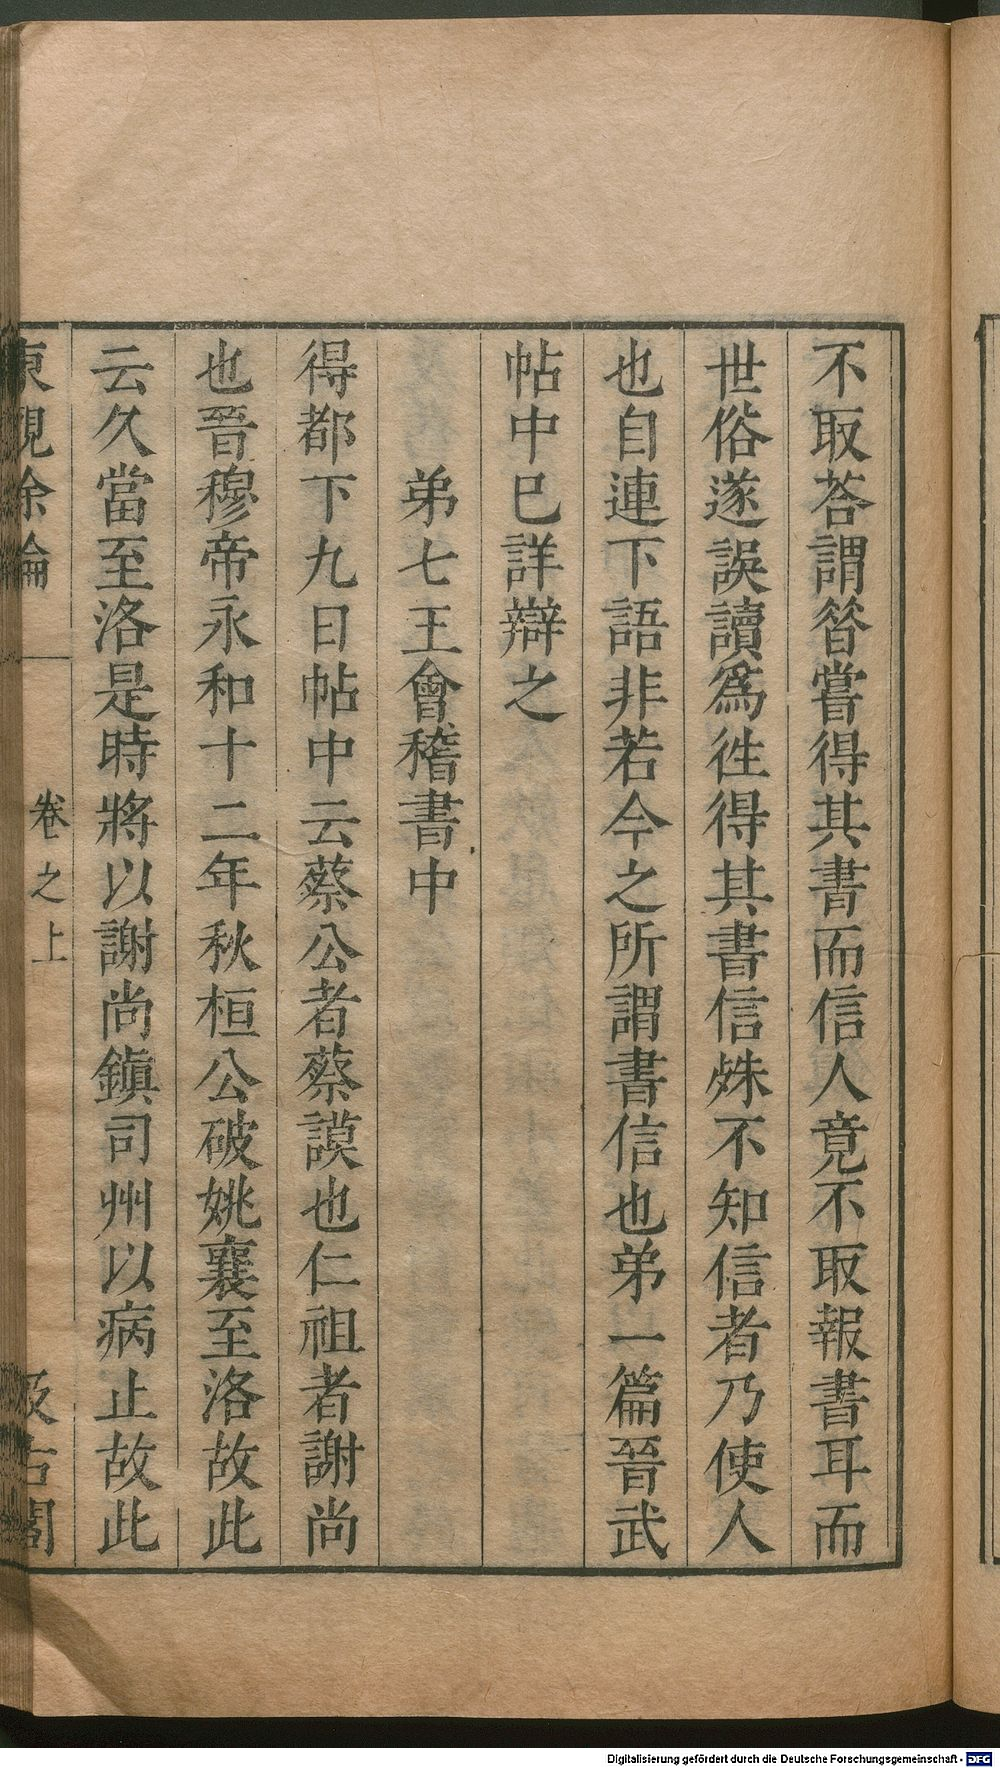 不取荅謂昝嘗得其書而信人竟不取報書耳而
世俗遂誤讀爲徃得其書信殊不知信者乃使人
也自連下語非若今之所謂書信也弟一篇晉武
帖中已詳辯之
弟七王會稽書中
得都下九日帖中云蔡公者蔡謨也仁祖者謝尚
也晉穆帝永和十二年秋桓公破姚襄至洛故此
云久當至洛是時將以謝尚鎭司州以病止故此
東觀余論 卷之上 汲古閣
Digitalisierung gefördert durch die Deutsche Forschungsgemeinschaft - DFG